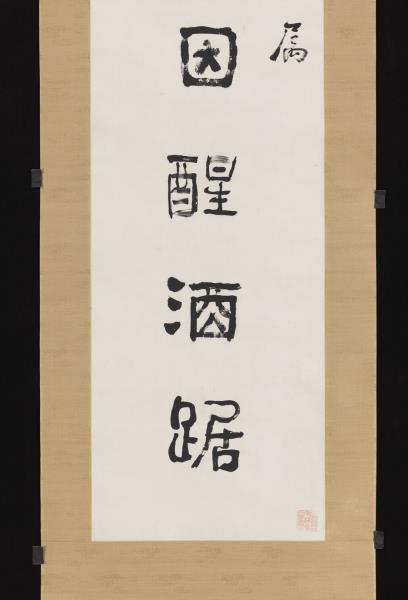 属
因醒酒踞